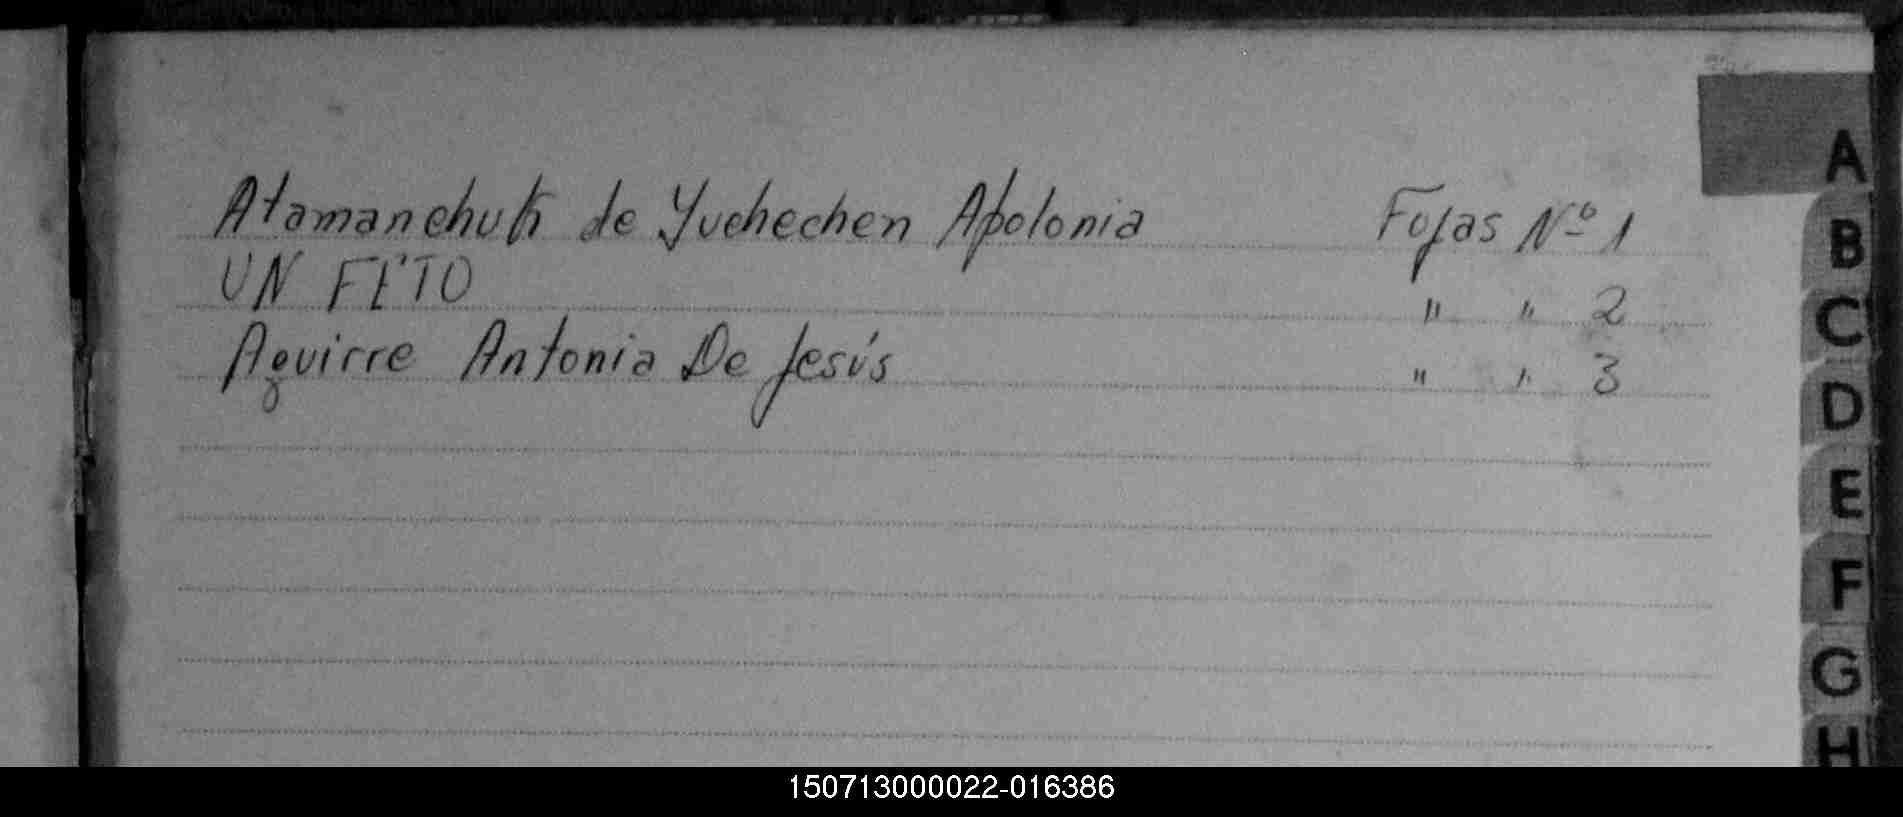 Atamanchuk de Yuchechen Apolonia Fojas Nº 1
UN FETO " " 2
Aguirre Antonia De Jesús " " 3
A
B
C
D
E
F
G
H
150713000022-016386